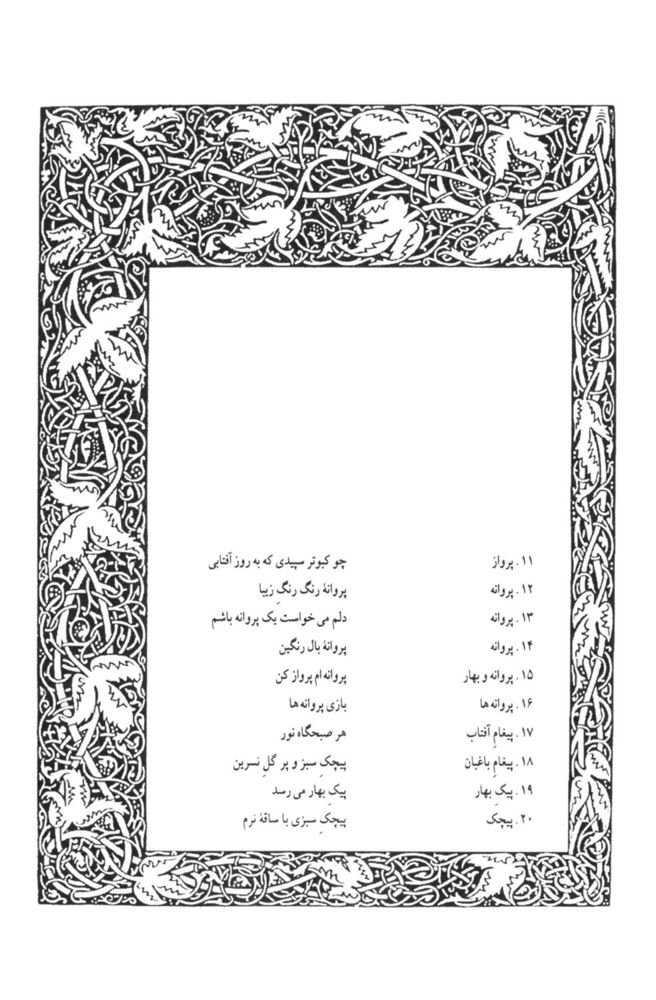 ۱۱. پرواز چو کبوتر سپیدی که به روز آفتابی
۱۲. پروانه پروانهٔ رنگ رنگِ زیبا
۱۳. پروانه دلم می خواست یک پروانه باشم
۱۴. پروانه پروانهٔ بال رنگین
۱۵. پروانه و بهار پروانه ام پرواز کن
۱۶. پروانه ها بازی پروانه ها
۱۷. پیغامِ آفتاب هر صبحگاه نور
۱۸. پیغامِ باغبان پیچکِ سبز و پر گلِ نسرین
۱۹. پیکِ بهار پیکِ بهار می رسد
۲۰. پیچک پیچکِ سبزی با ساقهٔ نرم